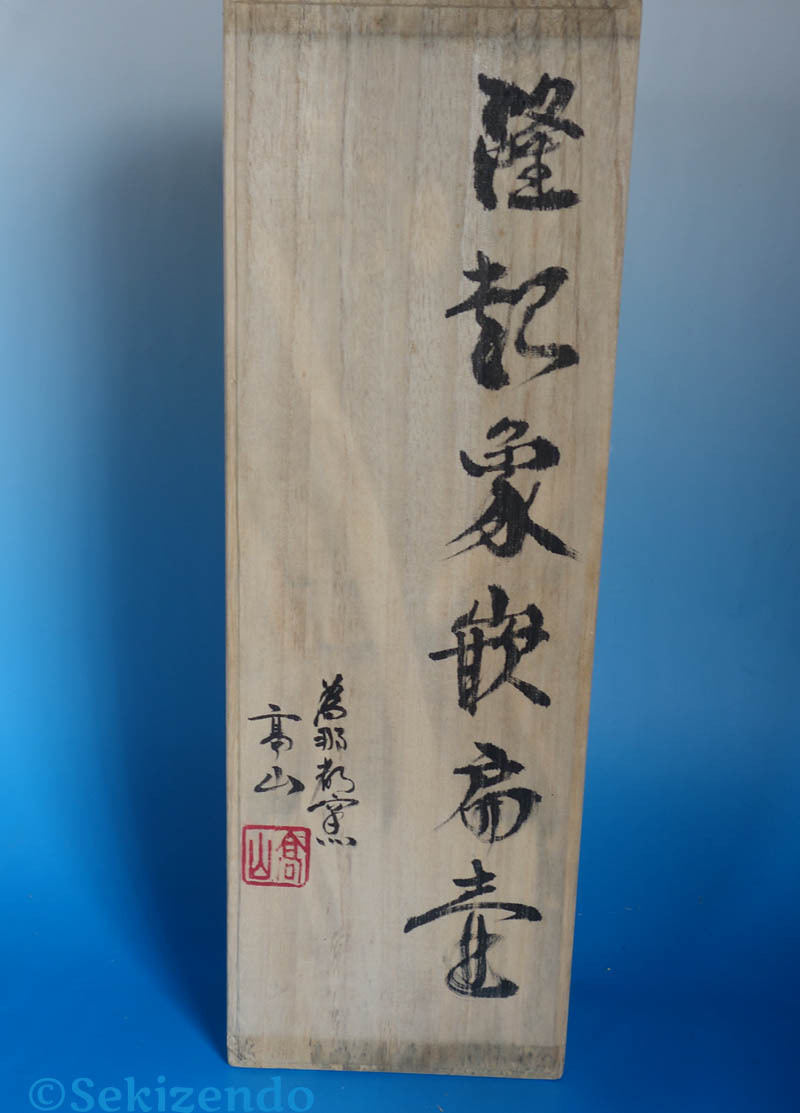 隆起象嵌扁壷
萬那都窯
高山
高山
©Sekizendo